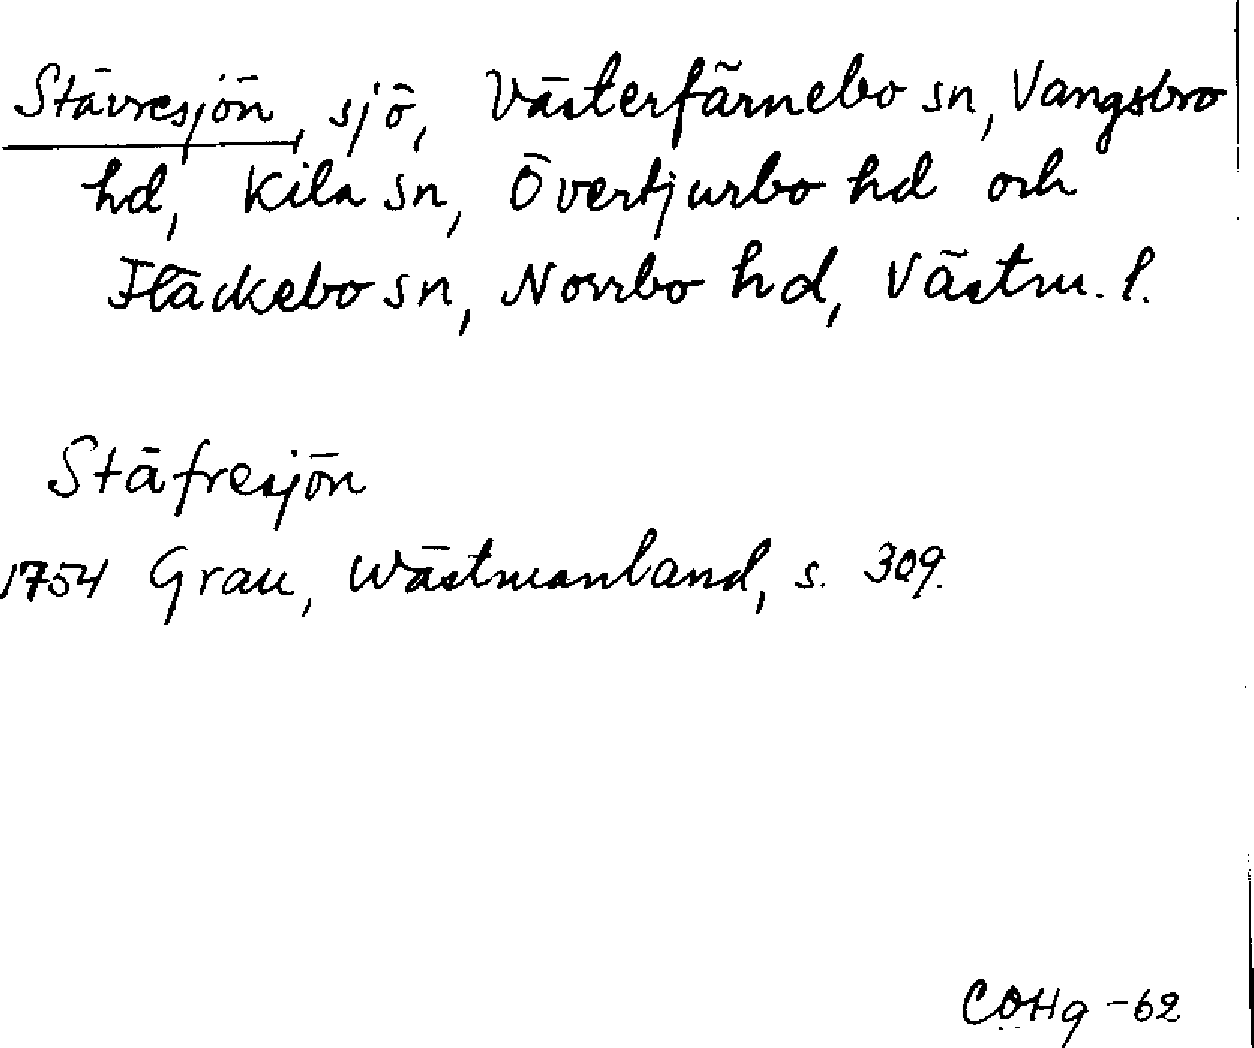 Stävresjön, sjö, Västerfärnebo sn, Vangsbro
hd, Kila sn, Övertjurbo hd och
Fläckebo sn, Norrbo hd, Västm. l.
Stäfresjön
1754 Grau, Wästmanland, s. 309.
COHg -62